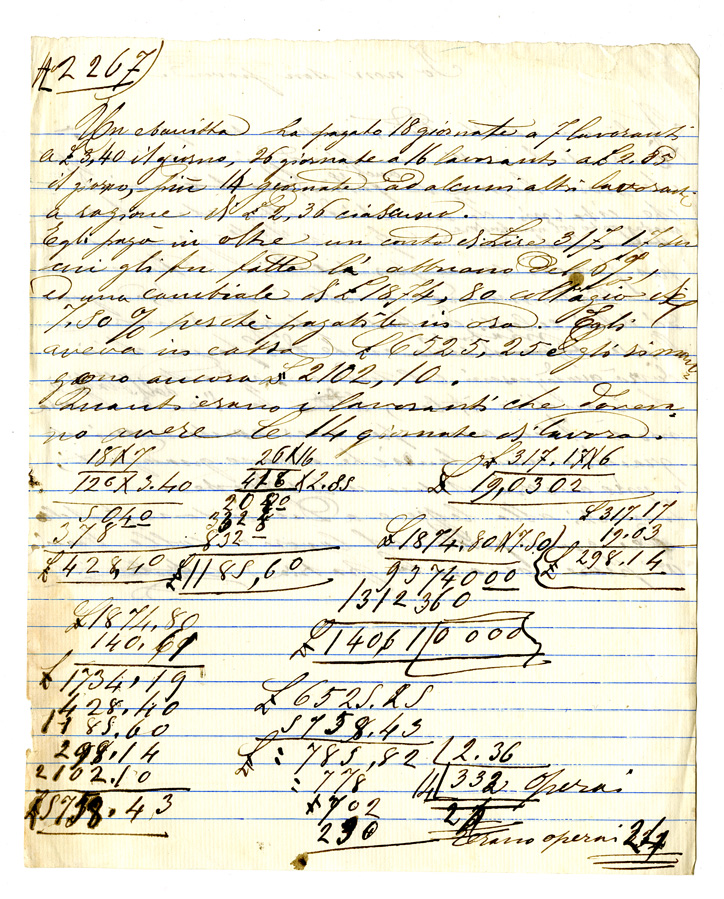 N 2267)
Un ebanista ha pagato 18 giornate a 7 lavoranti
a £ 3,40 il giorno, 26 giornate a 16 lavoranti a £ 2.85
il giorno, più 14 giornate ad alcuni altri lavoranti
a ragione di £ 2,36 ciascuno.
Egli pagò in oltre un conto di Lire 317,17 su
cui gli fu fatto l'abbuono del 6 %,
ed una cambiale di £ 1874,80 coll'agio del
7,50 % perchè pagabile in oro. Egli
aveva in cassa £ 6525,25 e gli riman
gono ancora £ 2102,10.
Quanti erano i lavoranti che doveva-
no avere le 14 giornate di lavoro.
18X7 26X16 £ 317.17X6
126 X 3.40 416 X 2.85 £ 19,0302
5040 2080 £ 317.17
378 3328 19.03
832 £ 1874.80 X 7.50 £ 298.14
£ 428,40 £ 1185,60 9374000
1312360
£ 1874,80 £ 140,61|0000
140,61
£ 1734,19 £ 6525.25
428.40 5758.43
1185.60 £ 785,82 2.36
298.14 778 14 332 operai
2102.10 702
£ 5758.43 230 Erano operai 24